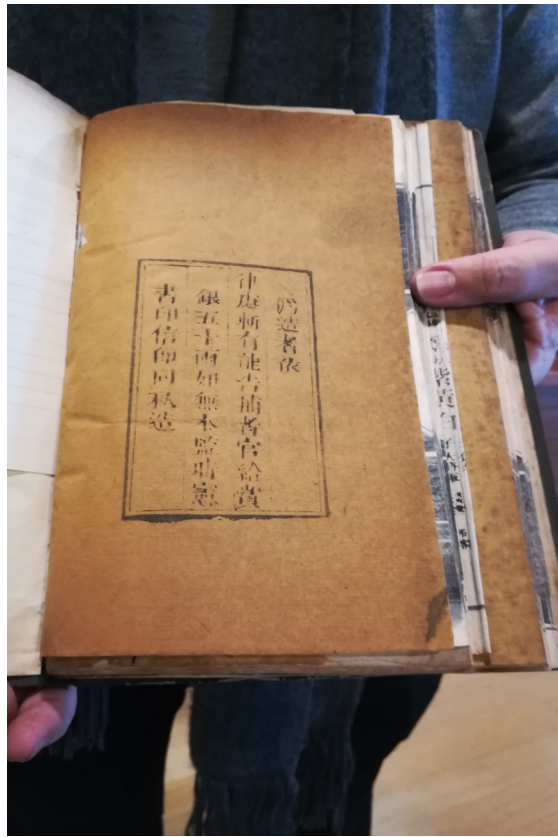 僞造者依
律處斬有能告捕者官給賞
銀五十兩如無本監時憲
書印信即同私造